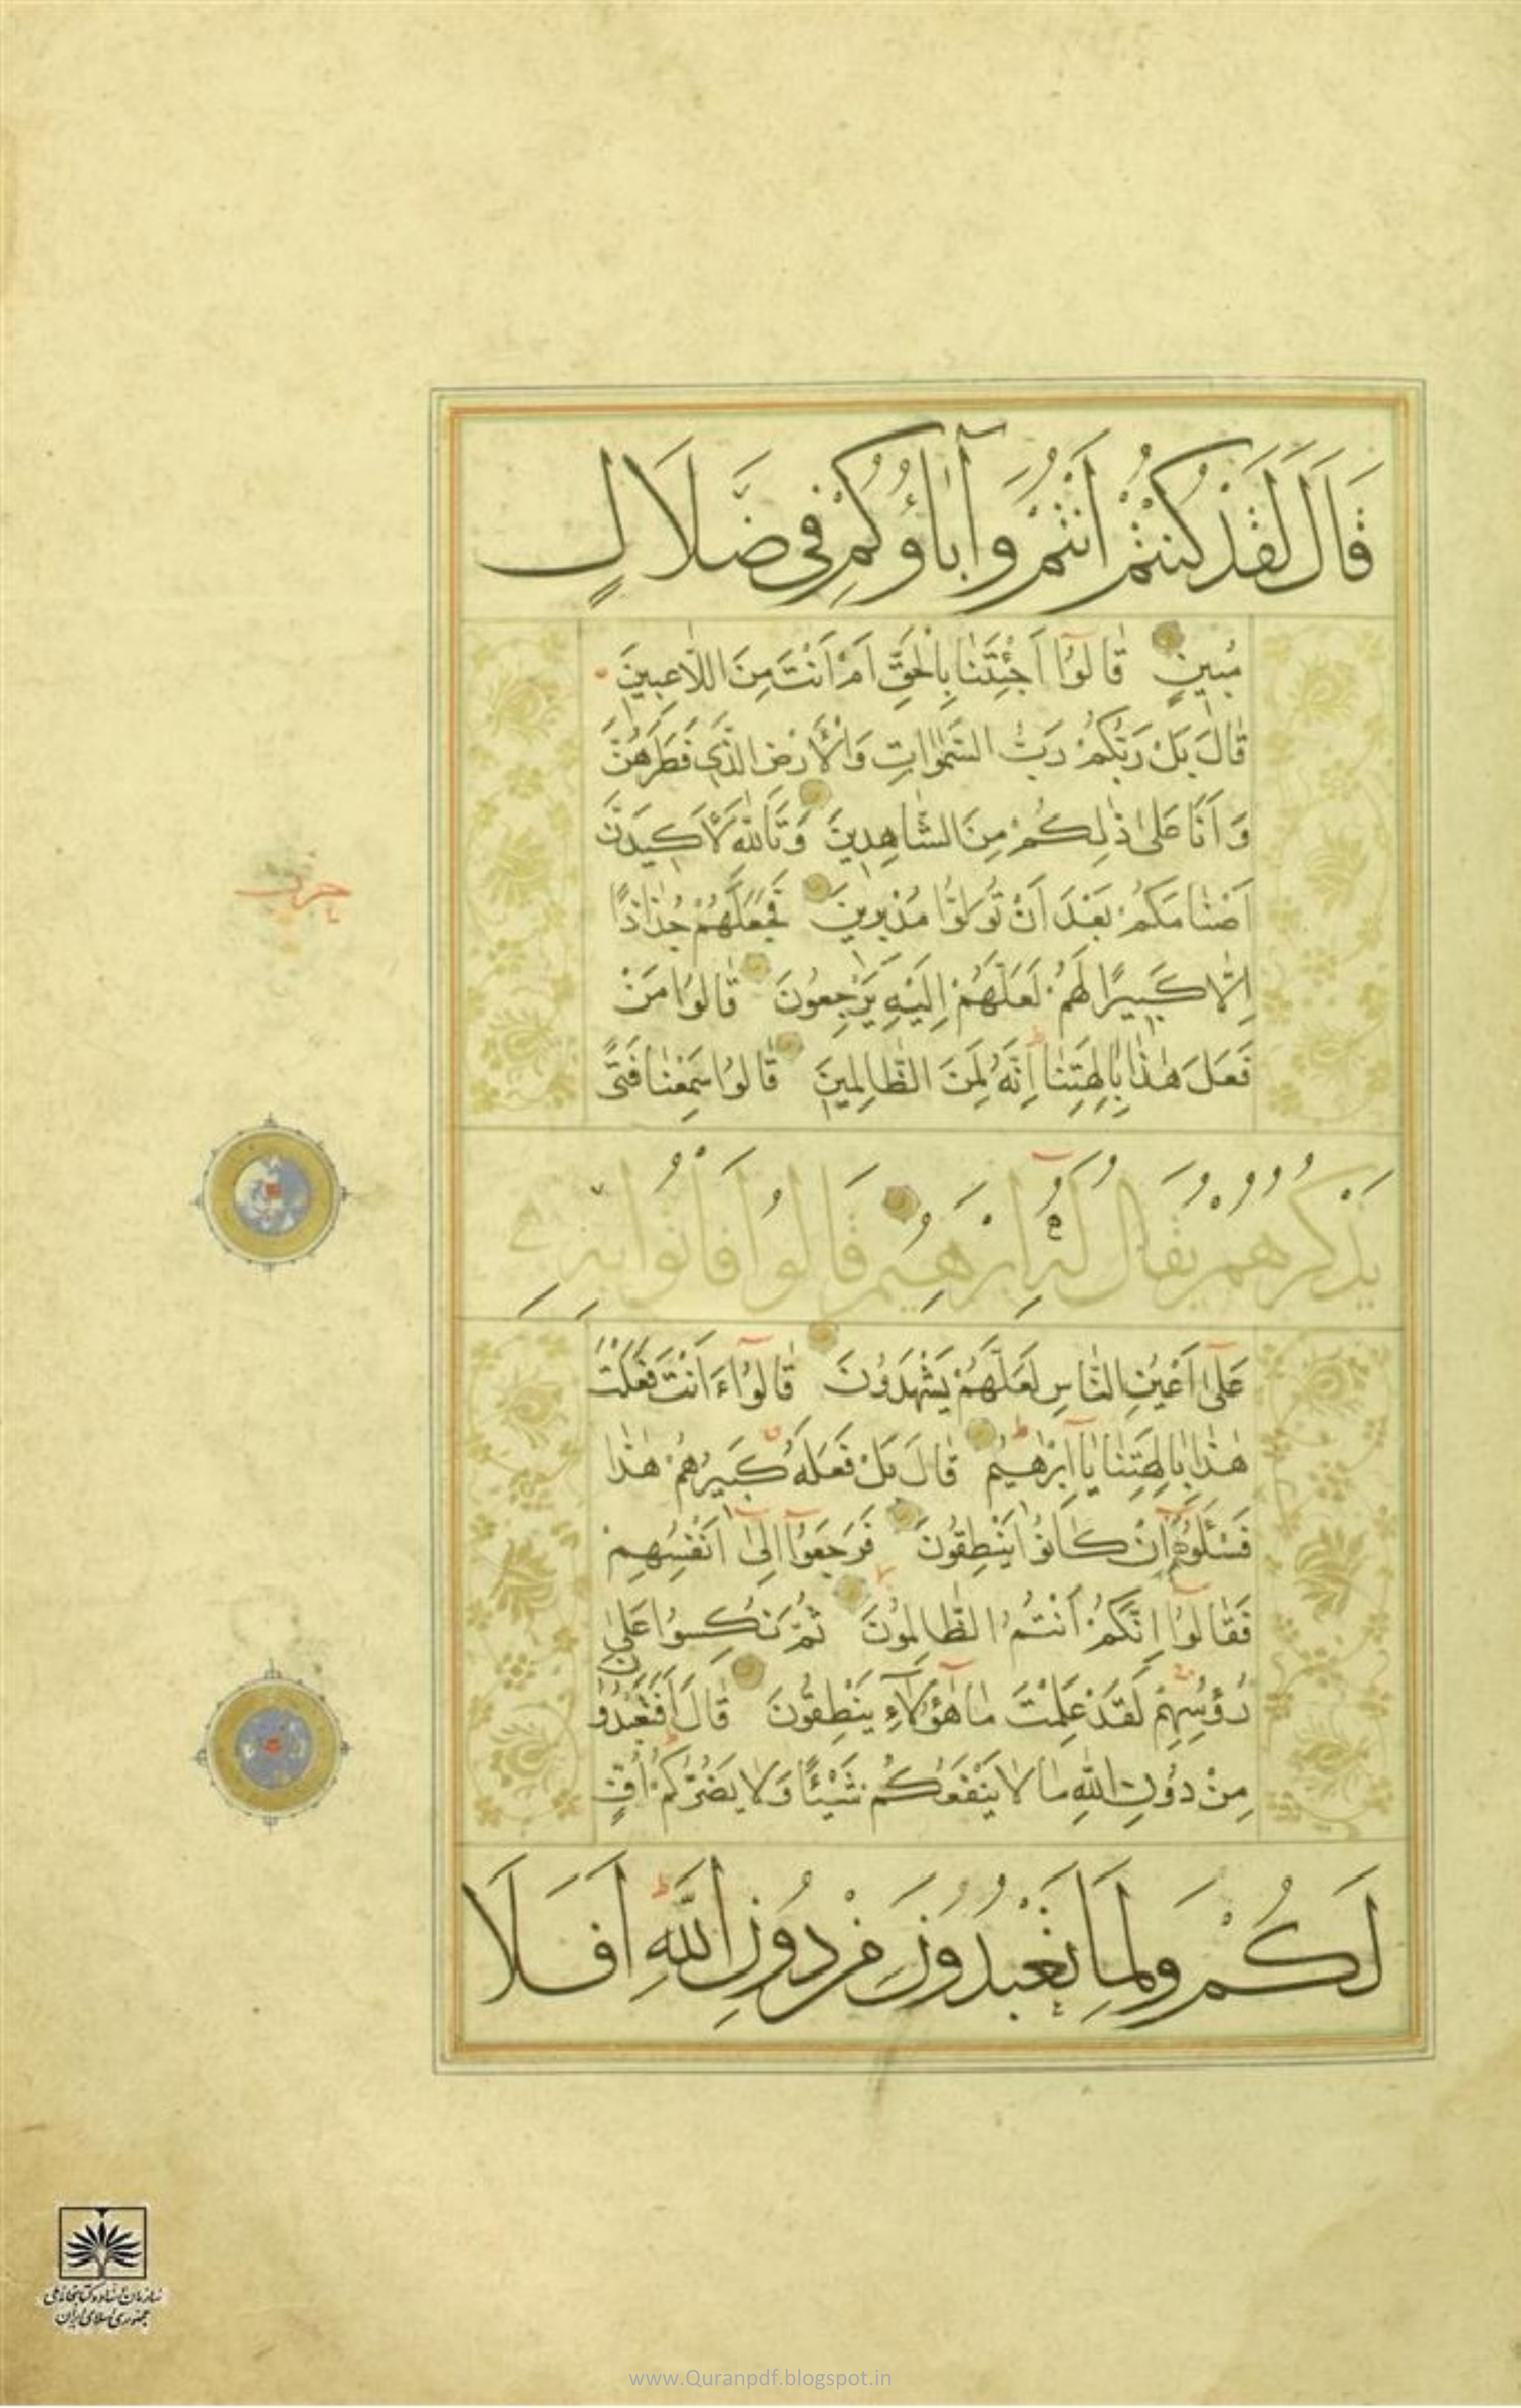 قَالَ لَقَدْ كُنْتُمْ اَنْتُمْ وَآبَاؤُكُمْ فِى ضَلَالٍ
مُبِينٍ قَالُوٓا اَجِئْتَنَا بِالْحَقِّ اَمْ اَنْتَ مِنَ اللَّاعِبِينَ
قَالَ بَلْ رَبُّكُمْ رَبُّ السَّمٰوَاتِ وَالْاَرْضِ الَّذِى فَطَرَهُنَّ
وَاَنَا عَلٰى ذٰلِكُمْ مِنَ الشَّاهِدِينَ وَتَاللّٰهِ لَاَكِيدَنَّ
اَصْنَامَكُمْ بَعْدَ اَنْ تُوَلُّوا مُدْبِرِينَ فَجَعَلَهُمْ جُذَاذًا
اِلَّا كَبِيرًا لَهُمْ لَعَلَّهُمْ اِلَيْهِ يَرْجِعُونَ قَالُوا مَنْ
فَعَلَ هٰذَا بِاٰلِهَتِنَا اِنَّهُ لَمِنَ الظَّالِمِينَ قَالُوا سَمِعْنَا فَتًى
يَذْكُرُهُمْ يُقَالُ لَهُٓ اِبْرٰهِيمُ قَالُوا فَاْتُوا بِهِ
عَلٰٓى اَعْيُنِ النَّاسِ لَعَلَّهُمْ يَشْهَدُونَ قَالُوٓا ءَاَنْتَ فَعَلْتَ
هٰذَا بِاٰلِهَتِنَا يَآ اِبْرٰهِيمُ قَالَ بَلْ فَعَلَهُ كَبِيرُهُمْ هٰذَا
فَسْئَلُوهُمْ اِنْ كَانُوا يَنْطِقُونَ فَرَجَعُوٓا اِلٰٓى اَنْفُسِهِمْ
فَقَالُوٓا اِنَّكُمْ اَنْتُمُ الظَّالِمُونَ ثُمَّ نُكِسُوا عَلٰى
رُؤُسِهِمْ لَقَدْ عَلِمْتَ مَا هٰٓؤُلَآءِ يَنْطِقُونَ قَالَ اَفَتَعْبُدُونَ
مِنْ دُونِ اللّٰهِ مَا لَا يَنْفَعُكُمْ شَيْئًا وَلَا يَضُرُّكُمْ اُفٍّ
لَكُمْ وَلِمَا تَعْبُدُونَ مِنْ دُونِ اللّٰهِ اَفَلَا
حزب
سازمان اسناد و کتابخانه ملی
جمهوری اسلامی ایران
www.Quranpdf.blogspot.in